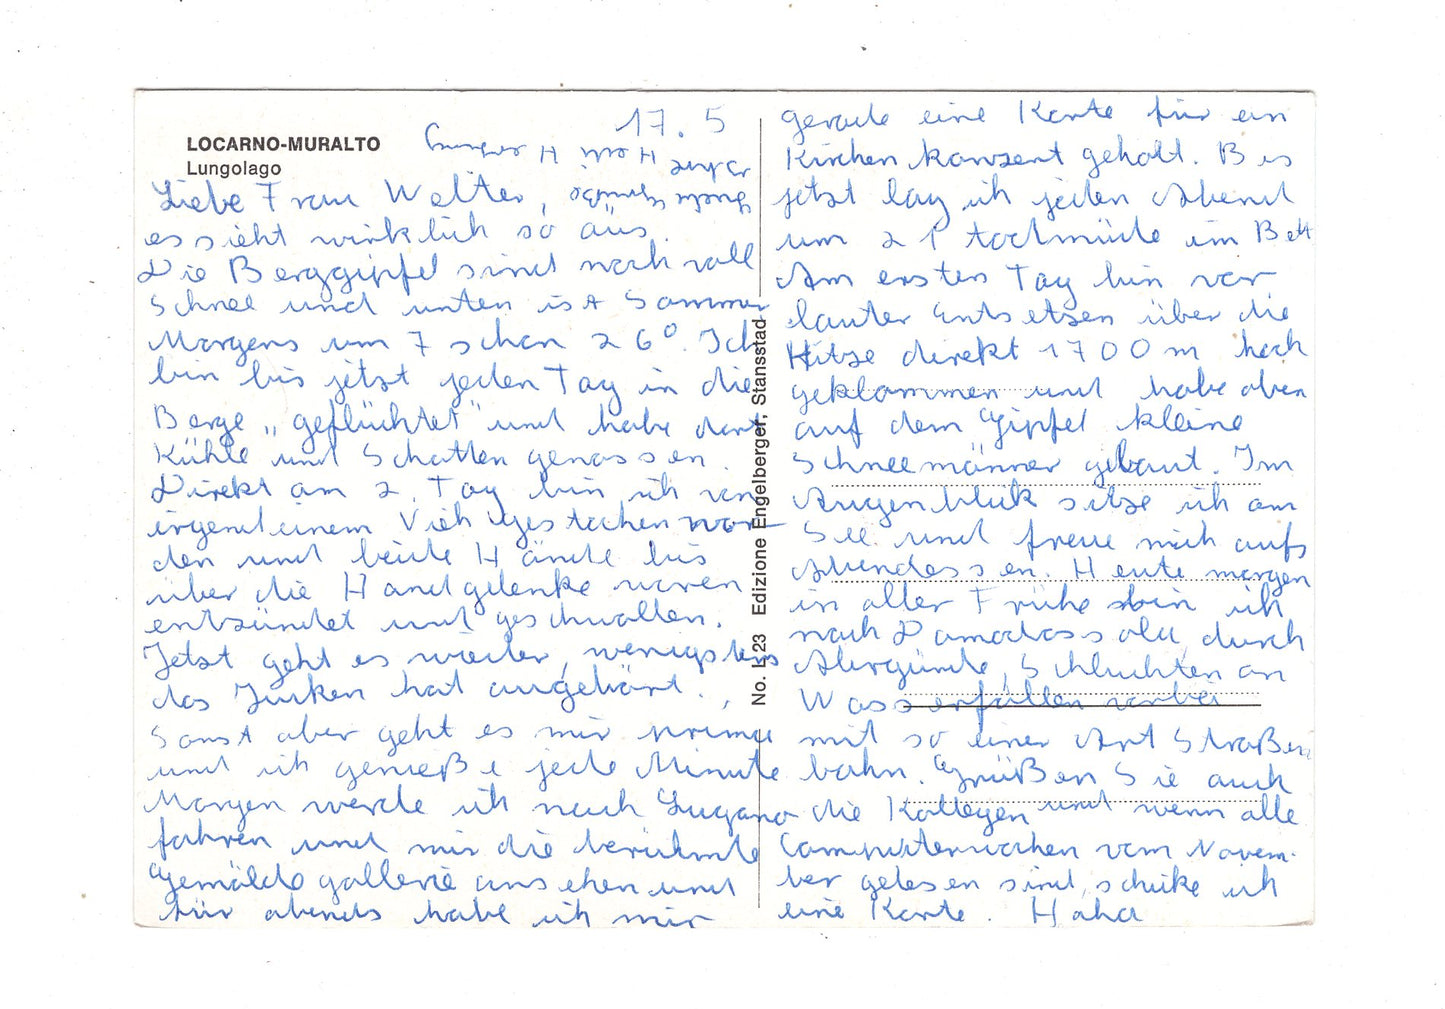 LOCARNO-MURALTO
Lungolago
17. 5
Liebe Frau Welter,
es sieht wirklich so aus.
Die Berggipfel sind noch voll
Schnee und unten ist Sommer
Morgens um 7 schon 26°. Ich
bin bis jetzt jeden Tag in die
Berge „geflüchtet" und habe dort
Kühle und Schatten genossen.
Direkt am 2. Tag bin ich von
irgendeinem Vieh gestochen wor-
den und beide Hände bis
über die Handgelenke waren
entzündet und geschwollen.
Jetzt geht es wieder, wenigstens
das Jucken hat aufgehört.
Sonst aber geht es mir prima
und ich genieße jede Minute
Morgen werde ich nach Lugano
fahren und mir die berühmte
Gemäldegallerie ansehen und
für abends habe ich mir
gerade eine Karte für ein
Kirchenkonzert geholt. Bis
jetzt lag ich jeden Abend
um 21 todmüde im Bett
Am ersten Tag bin vor
lauter Entsetzen über die
Hitze direkt 1700 m hoch
geklommen und habe oben
auf dem Gipfel kleine
Schneemänner gebaut. Im
Augenblick sitze ich am
See und freue mich aufs
Abendessen. Heute morgen
in aller Frühe bin ich
nach Domodossola, durch
Abgründe, Schluchten an
Wasserfällen vorbei
mit so einer Art Straßen
bahn. Grüßen Sie auch
die Kollegen und wenn alle
Computerwochen vom Novem-
ber gelesen sind, schicke ich
eine Karte. Haha
No. L 23 Edizione Engelberger, Stansstad